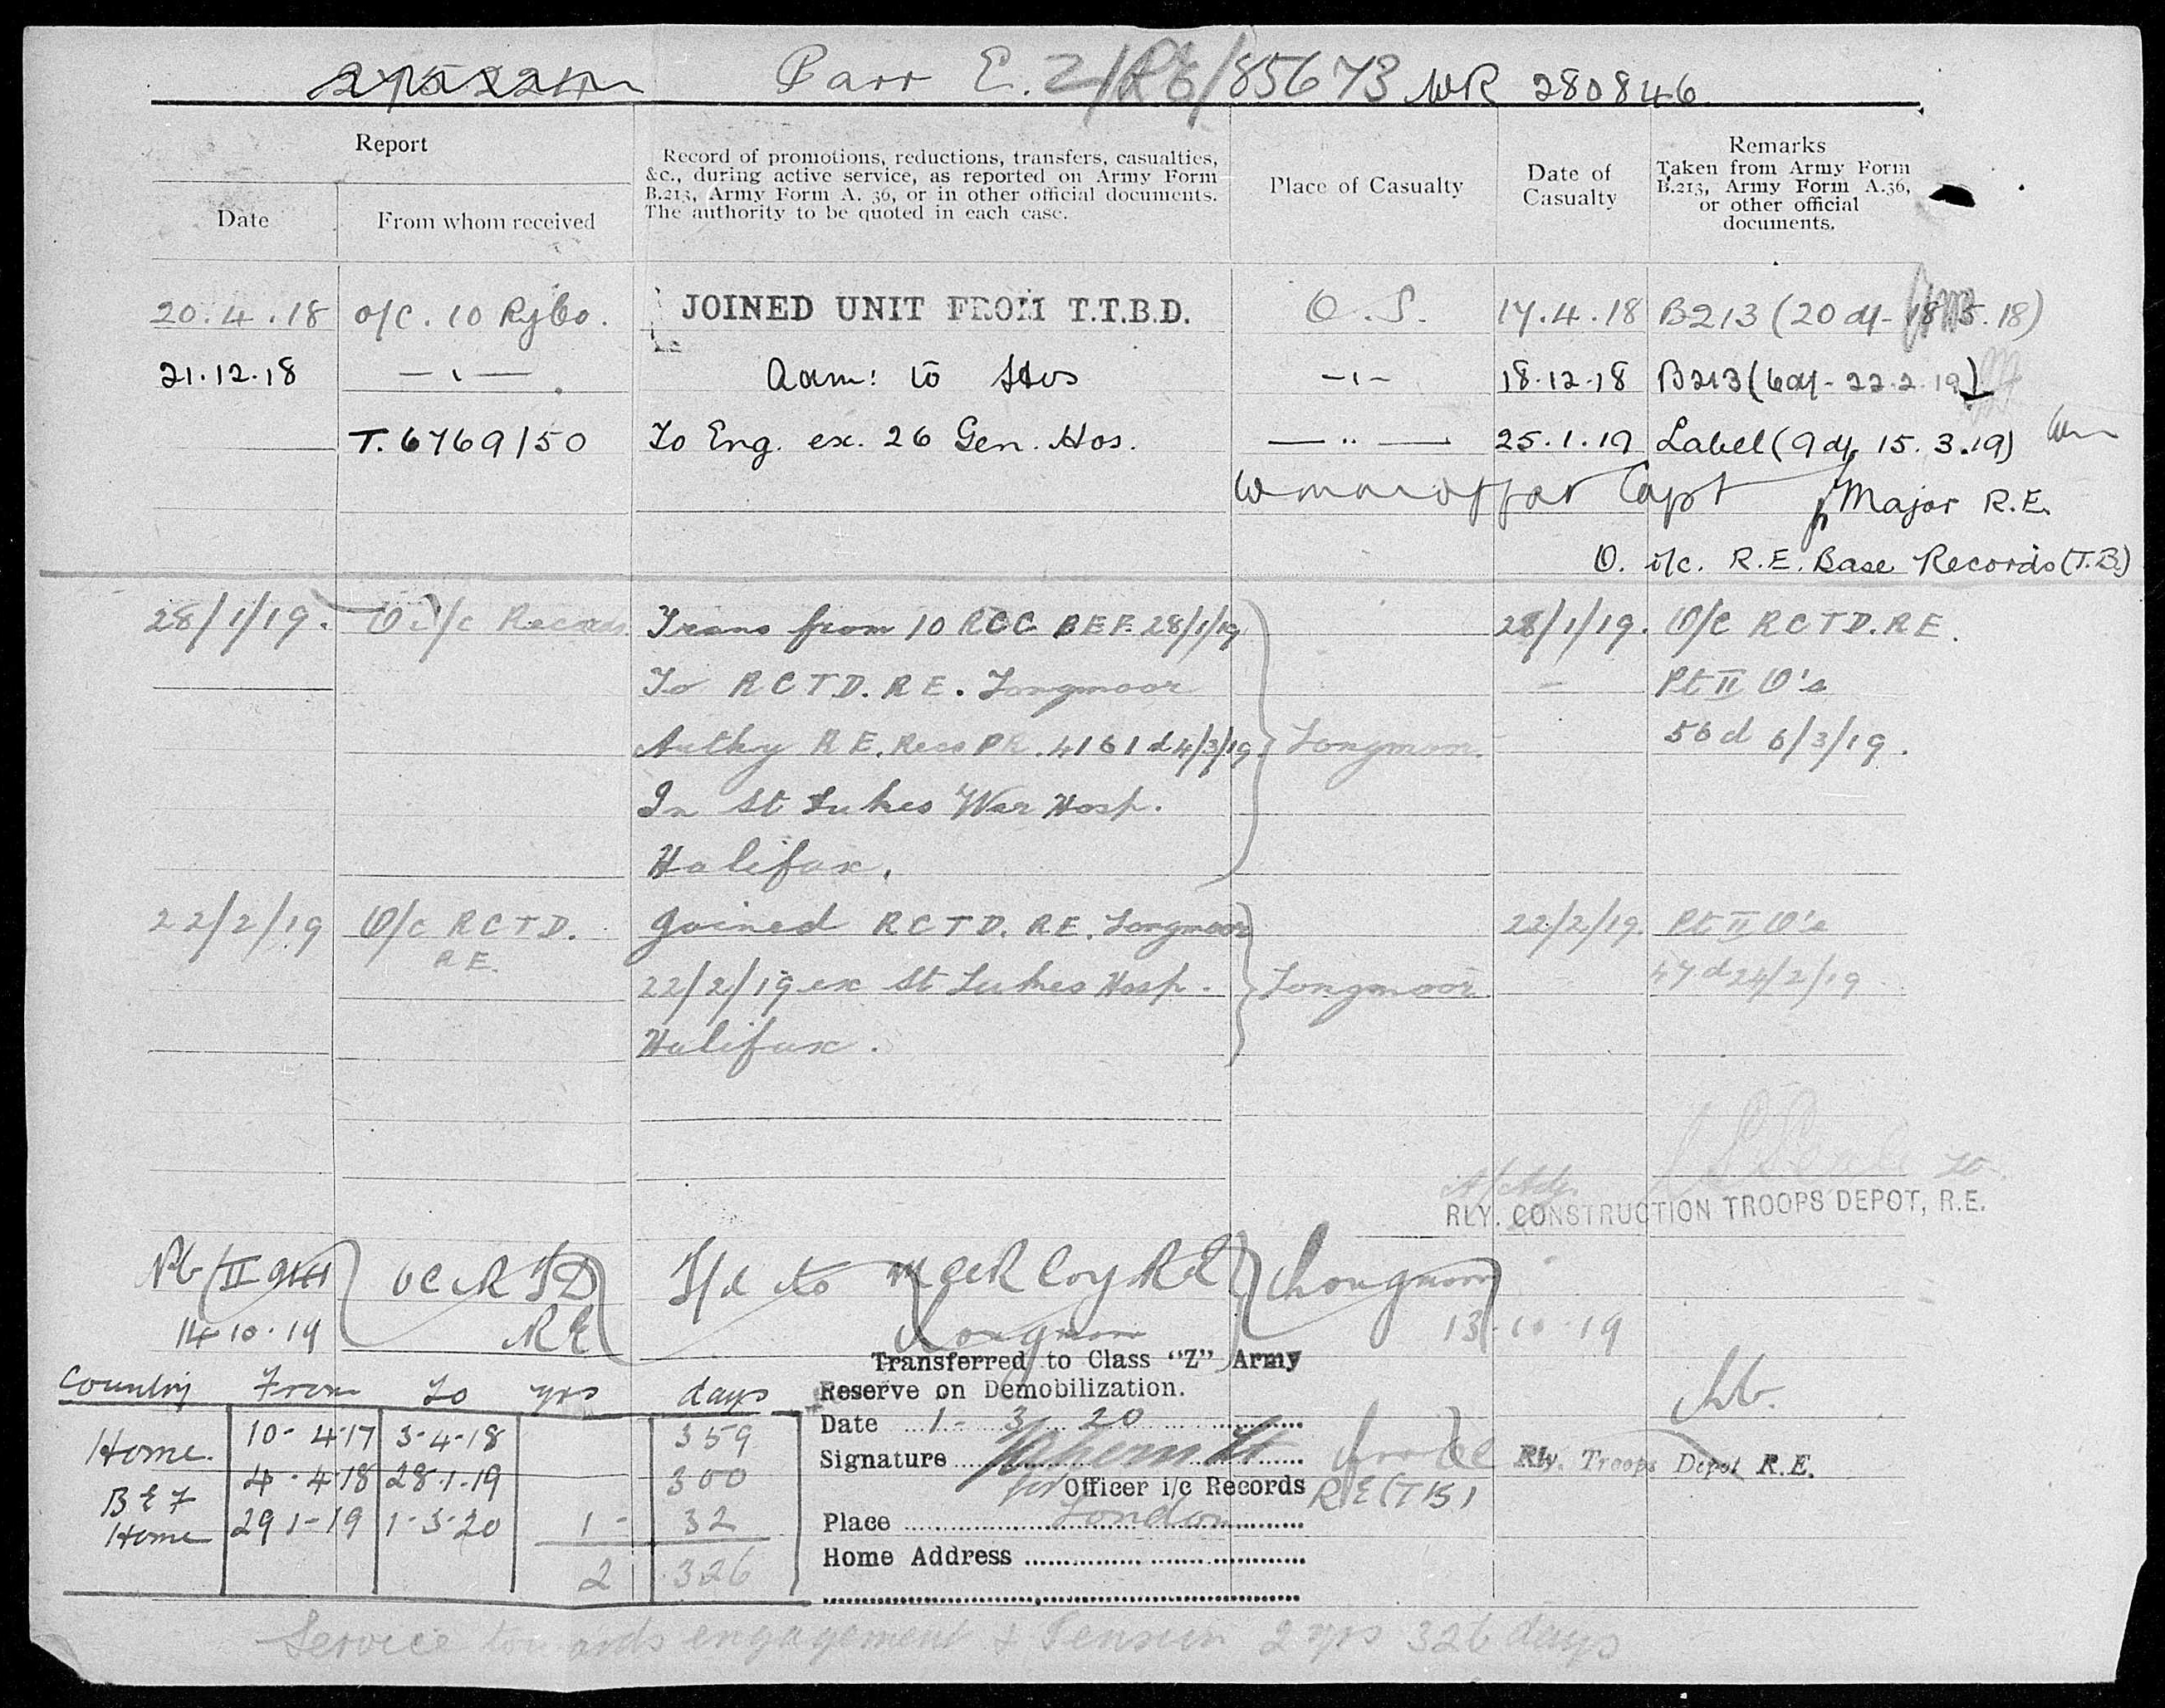 Parr E. 2/RE/85673 WR 280846
Report
Date
From whom received
Record of promotions, reductions, transfers, casualties,
&c., during active service, as reported on Army Form
B.213, Army Form A. 36, or in other official documents.
The authority to be quoted in each case.
Place of Casualty
Date of
Casualty
Remarks
Taken from Army Form
B.213, Army Form A.36,
or other official
documents.
20.4.18 o/c. 10 Ry Co. JOINED UNIT FROM T.T.B.D. O.S. 17.4.18 B213 (20 d/- 18.5.18)
21.12.18 — " — Adm: to Hos — " — 18.12.18 B213 (6 d/- 22.2.19)
T. 6769/50 To Eng. ex. 26 Gen. Hos. — " — 25.1.19 Label (9 d/ 15.3.19)
Capt
for Major R.E.
O. i/c. R.E. Base Records (T.B.)
28/1/19. O i/c Records Trans from 10 RCC BEF. 28/1/19 28/1/19. O/C RCTD. RE.
To RCTD. RE. Longmoor Pt II O's
Authy RE. Recs PR. 4161 d 4/3/19. Longmoor. 56 d 6/3/19.
In St Lukes War Hosp.
Halifax.
22/2/19 O/C RCTD. Joined RCTD. RE. Longmoor 22/2/19. Pt II O's
RE. 22/2/19 ex St Lukes Hosp. Longmoor 47 d 24/2/19
Halifax.
A/Adj. Lt
RLY. CONSTRUCTION TROOPS DEPOT, R.E.
II OC R T D T/d to Coy RE Longmoor
14.10.19 RE Longmoor 13.10.19
Transferred to Class "Z" Army
Reserve on Demobilization.
Date 1 - 3 20
Signature
for Officer i/c Records RE (TB)
Place London
Home Address
Rly. Troops Depot R.E.
Country From To yrs days
Home. 10-4-17 3-4-18 359
BEF 4-4-18 28-1-19 300
Home 29 1-19 1-3-20 1 - 32
2 326
Service towards engagement & Pension 2 yrs 326 days